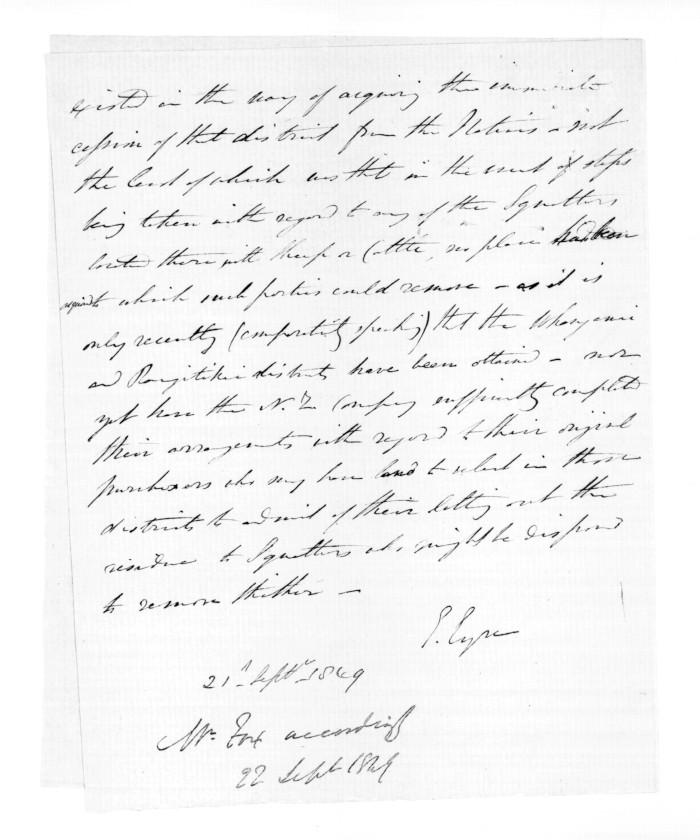 existed in the way of acquiring the immediate
cession of that district from the Natives - not
the least of which was that in the event of steps
being taken with regard to any of the Squatters
located there with Sheep or Cattle, no place had been
acquired to which such parties could remove - as it is
only recently (comparatively speaking) that the Whanganui
and Rangitikei districts have been obtained - nor
yet have the N.Z. Company sufficiently completed
their arrangements with regard to their original
purchasers who may have land to select in those
districts to admit of their letting out the
residue to Squatters who might be disposed
to remove thither -
E. Eyre
21st Septr. 1849
Mr. Fox accordingly
22 Sept 1849